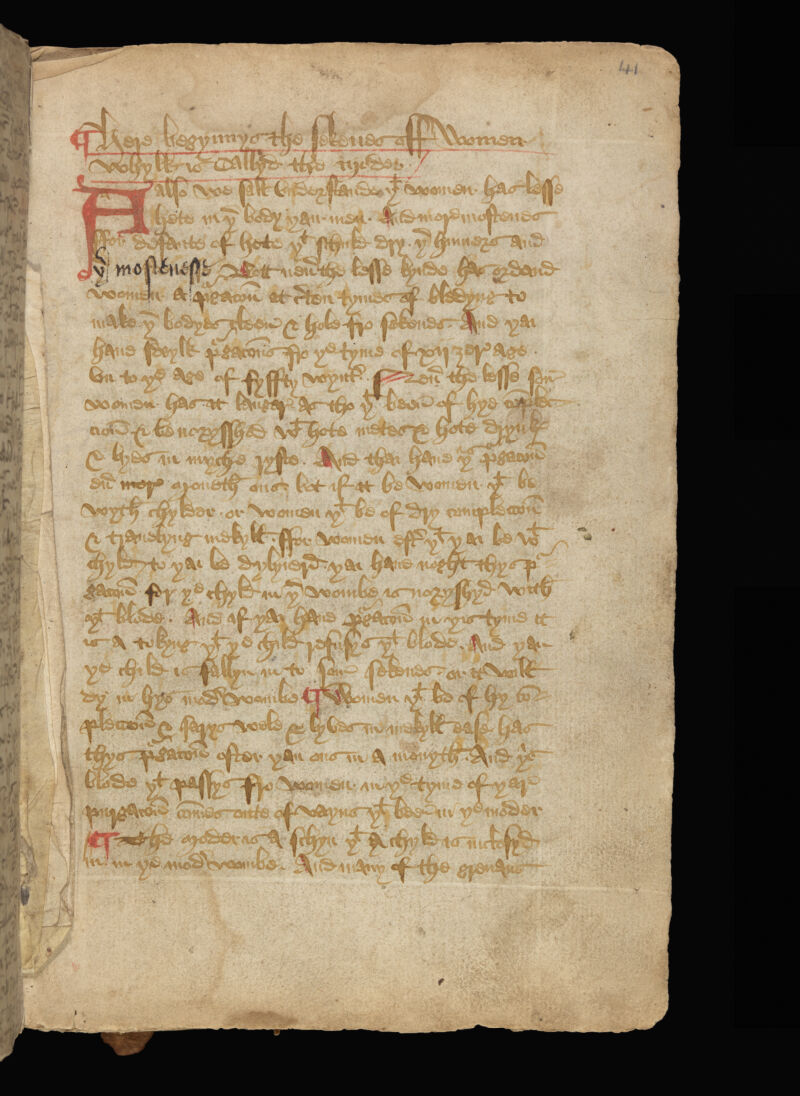 41
¶ Here begynnys the sekenes off Women
whylk is Callyd the moder
Also we sall vnderstande yt women has lesse
hete in yr body yan men. And more mostenes
ffor defaute of hete yt schuld dry yr humers and
yr mostenesse Bott neuer the lesse kynde has ordand
women a purgacoun at certen tymes of bledyng to
make yr bodyes cleen & hole fro sekenes And yai
haue swylk purgacouns fro ye tyme of xij zer age
vn to ye age of fyffty wynter. Neuer the lesse som
women has it langar as tho yt been of hye complec
cioun & be norysshed wt hote metes & hote drynk
& lyes in myche ryste. And thai haue yis purgacoun
eueri moneth ons bot if it be women yt be
wyth chylder. or women yt be of dry compleccoun
& trauelyng mekyll. ffor women efter yt yai be wt
chyld to yai be delyuerd yai haue noght thys pur
gacoun for ye chyld in yr wombe is noryshyd with
yt blode. And if yai haue purgacoun in yis tyme it
is a tokyng yt ye child refusys yt blode. And yan
ye child is fallyn in to som sekenes. or it will
dy in hys moder wombe ¶ Women yt be of hy com
pleccoun & farys wele & lyves in mekyll ease has
thys purgacoun ofter yan ons in a monyth. And yis
blode yt passys fro women in ye tyme of yar
purgacoun comes oute of vayns yt been in ye moder
¶ The moder is a schyn yt A chyld is inclosyd
in in ye moder wombe. And many of the greuaus